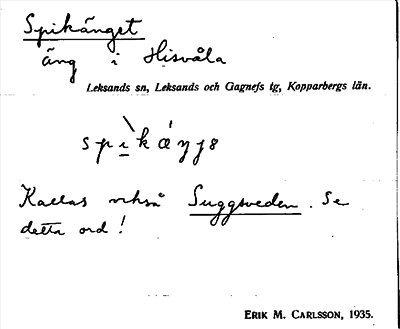 Spikänget
äng i Hisvåla
Leksands sn, Leksands och Gagnefs tg, Kopparbergs län.
Kallas också Suggsveden. Se
detta ord!
ERIK M. CARLSSON, 1935.